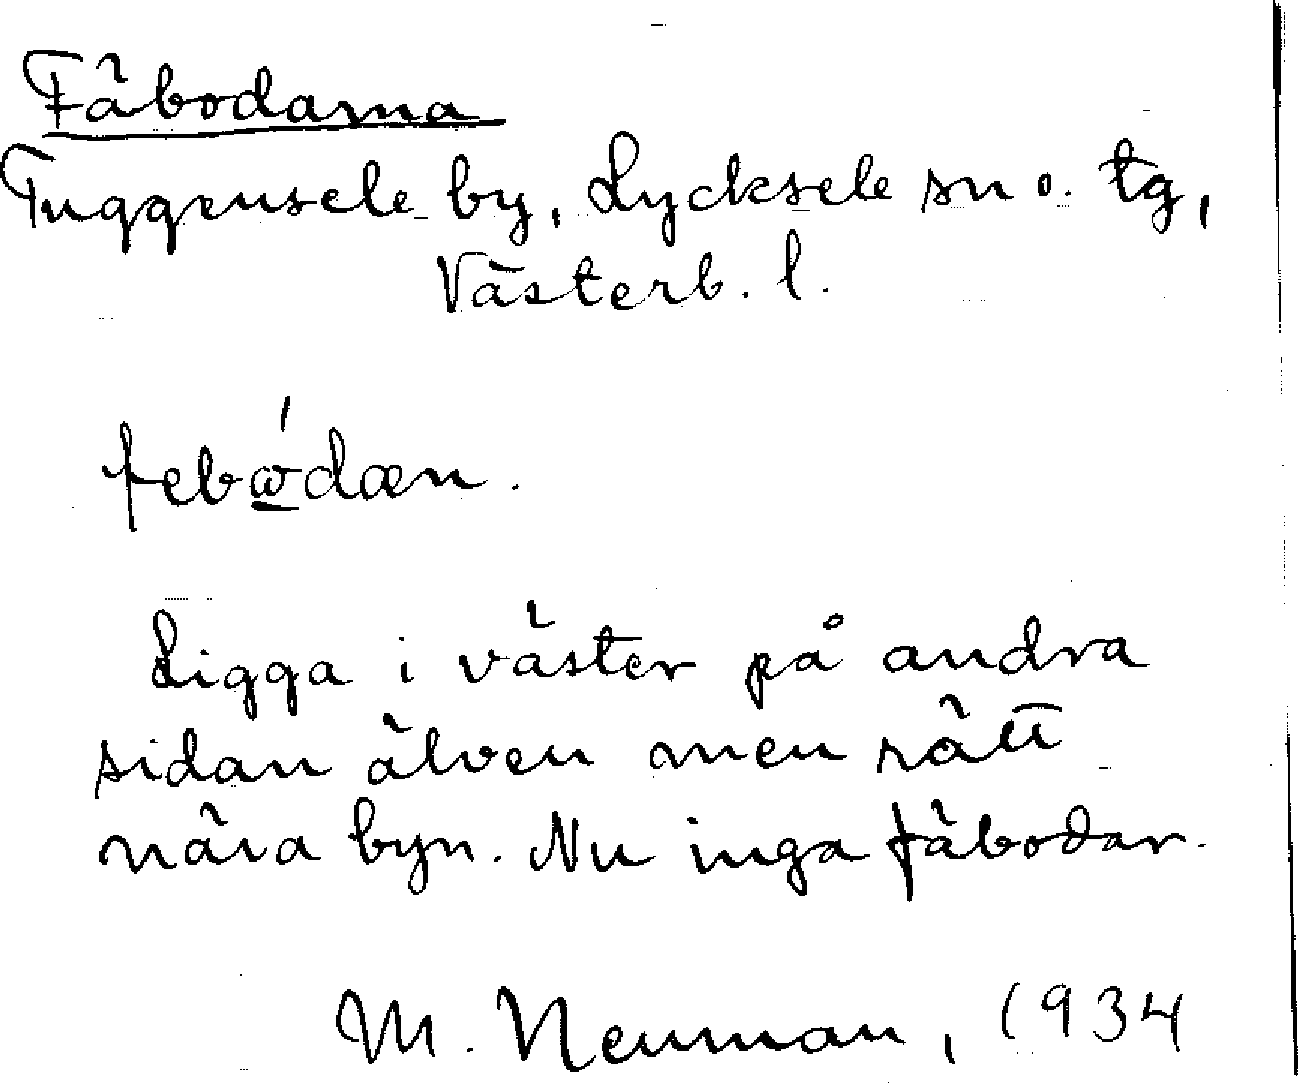 Fäbodarna
Tuggensele by, Lycksele sn o. tg,
Västerb. l.
febώ̲dæn.
Ligga i väster på andra
sidan älven men rätt
nära byn. Nu inga fäbodar.
M. Neuman, 1934